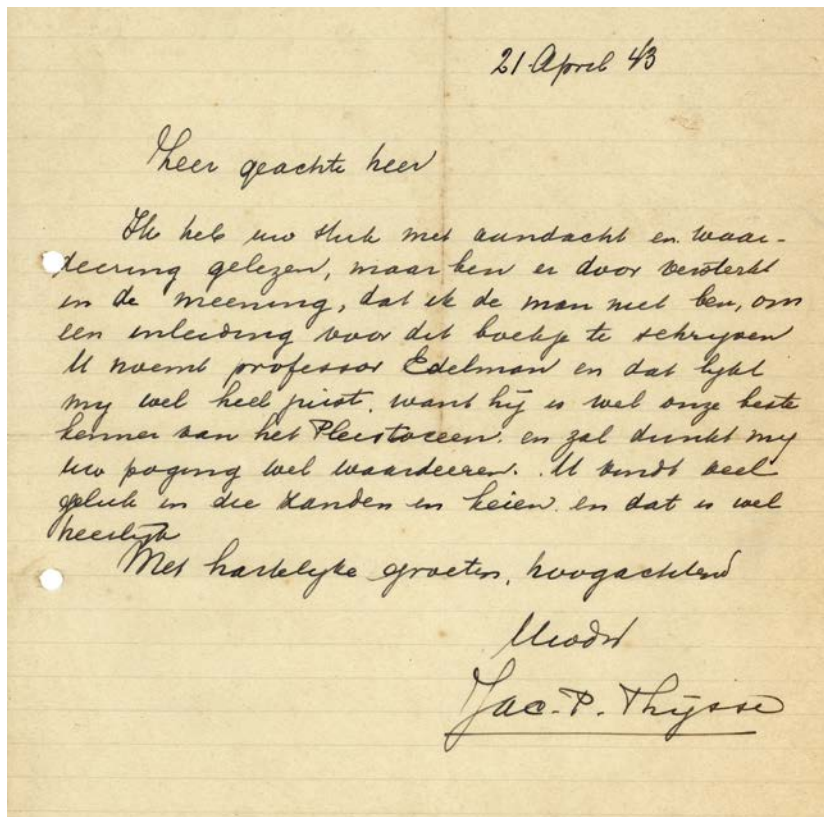 21 April 43
Zeer geachte heer
Ik heb uw stuk met aandacht en waar-
deering gelezen, maar ben er door versterkt
in de meening, dat ik de man niet ben, om
een inleiding voor dit boekje te schrijven
U noemt professor Edelman en dat lijkt
mij wel heel juist, want hij is wel onze beste
kenner van het Pleistoceen en zal dunkt mij
uw poging wel waardeeren. U vindt veel
geluk in die zanden en keien en dat is wel
heerlijk
Met hartelijke groeten, hoogachtend
Uwdw
Jac. P. Thijsse